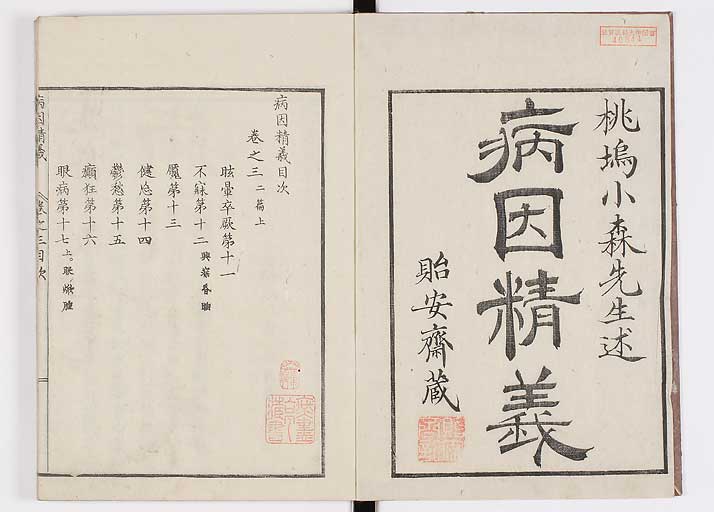 桃塢小森先生述
病因精義
貽安齋蔵
病因精義目次
巻之三 二篇上
眩暈卒厥第十一
不寐第十二
魘第十三
健忘第十四
鬱愁第十五
癲狂第十六
眼病第十七上
病因精義 巻之三目次